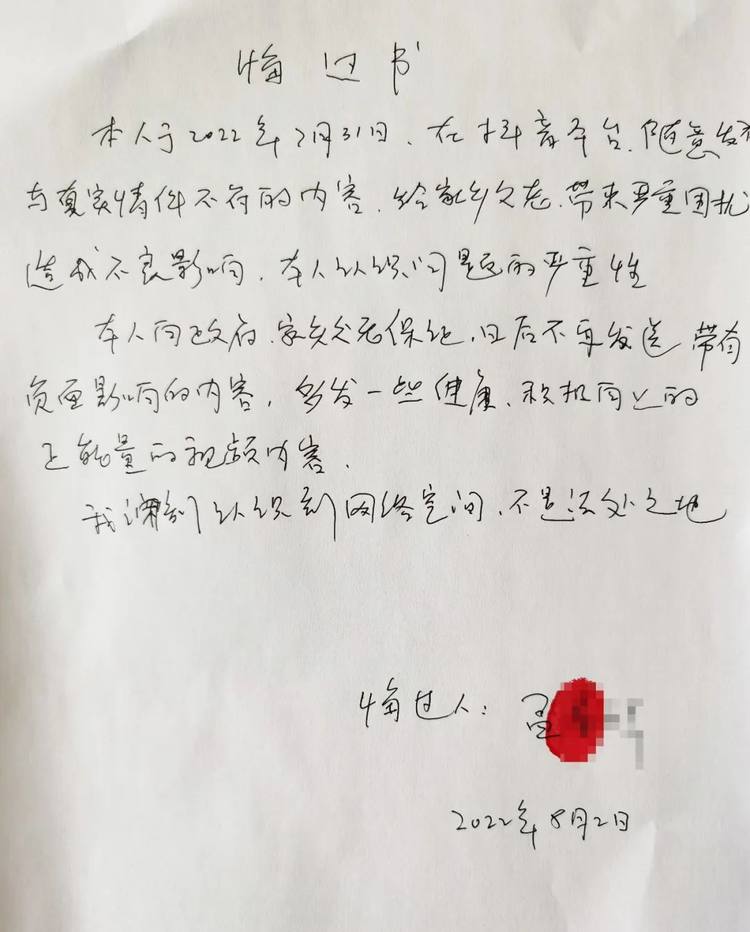 悔过书
本人于2022年7月31日、在抖音平台、随意发布
与真实情件不符的内容、给家乡父老、带来严重困扰
造成不良影响、本人认识问题的严重性
本人向政府、家乡父老保证、日后不再发送带有
负面影响的内容，多发一些健康、积极向上的
正能量的视频内容、
我深刻认识到网络空间、不是法外之地
悔过人：孟
2022年8月2日